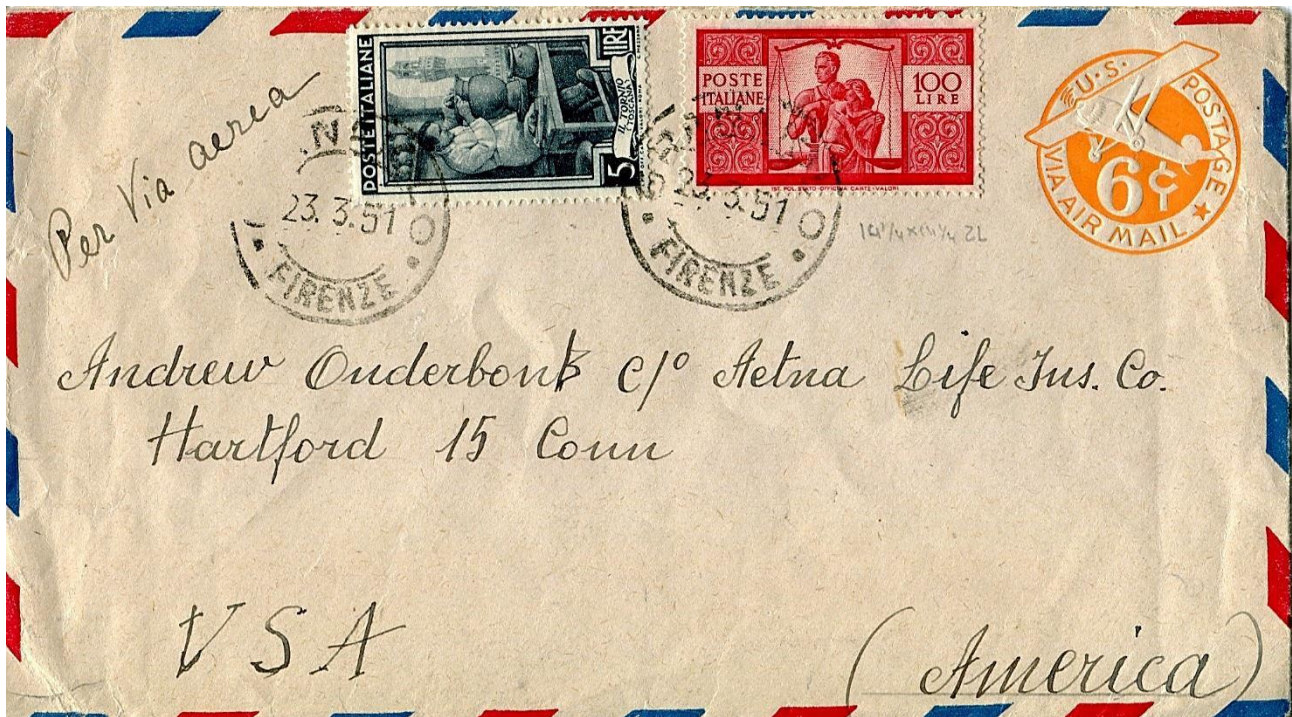 Per Via aerea
POSTE ITALIANE
5
LIRE
IL TORNIO
(TOSCANA)
POSTE
ITALIANE
100
LIRE
IST. POL. STATO OFFICINA CARTE-VALORI
U.S. POSTAGE
6¢
VIA AIR MAIL
23.3.51
FIRENZE
23.3.51
FIRENZE
Andrew Onderbonk c/o Aetna Life Ins. Co.
Hartford 15 Conn
USA
(America)